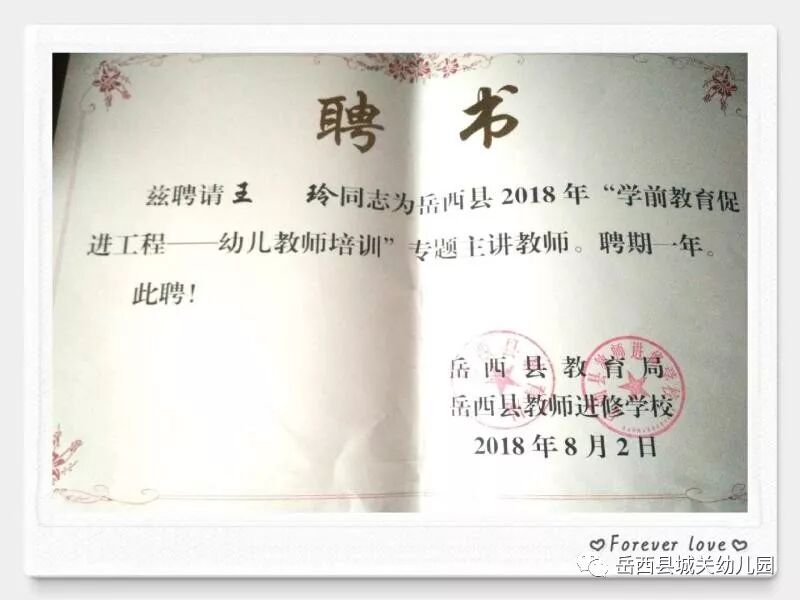 聘 书
兹聘请王 玲同志为岳西县 2018 年 “学前教育促
进工程——幼儿教师培训” 专题主讲教师。聘期一年。
此聘!
岳 西 县 教 育 局
岳西县教师进修学校
2018 年 8 月 2 日
Forever love
岳西县城关幼儿园